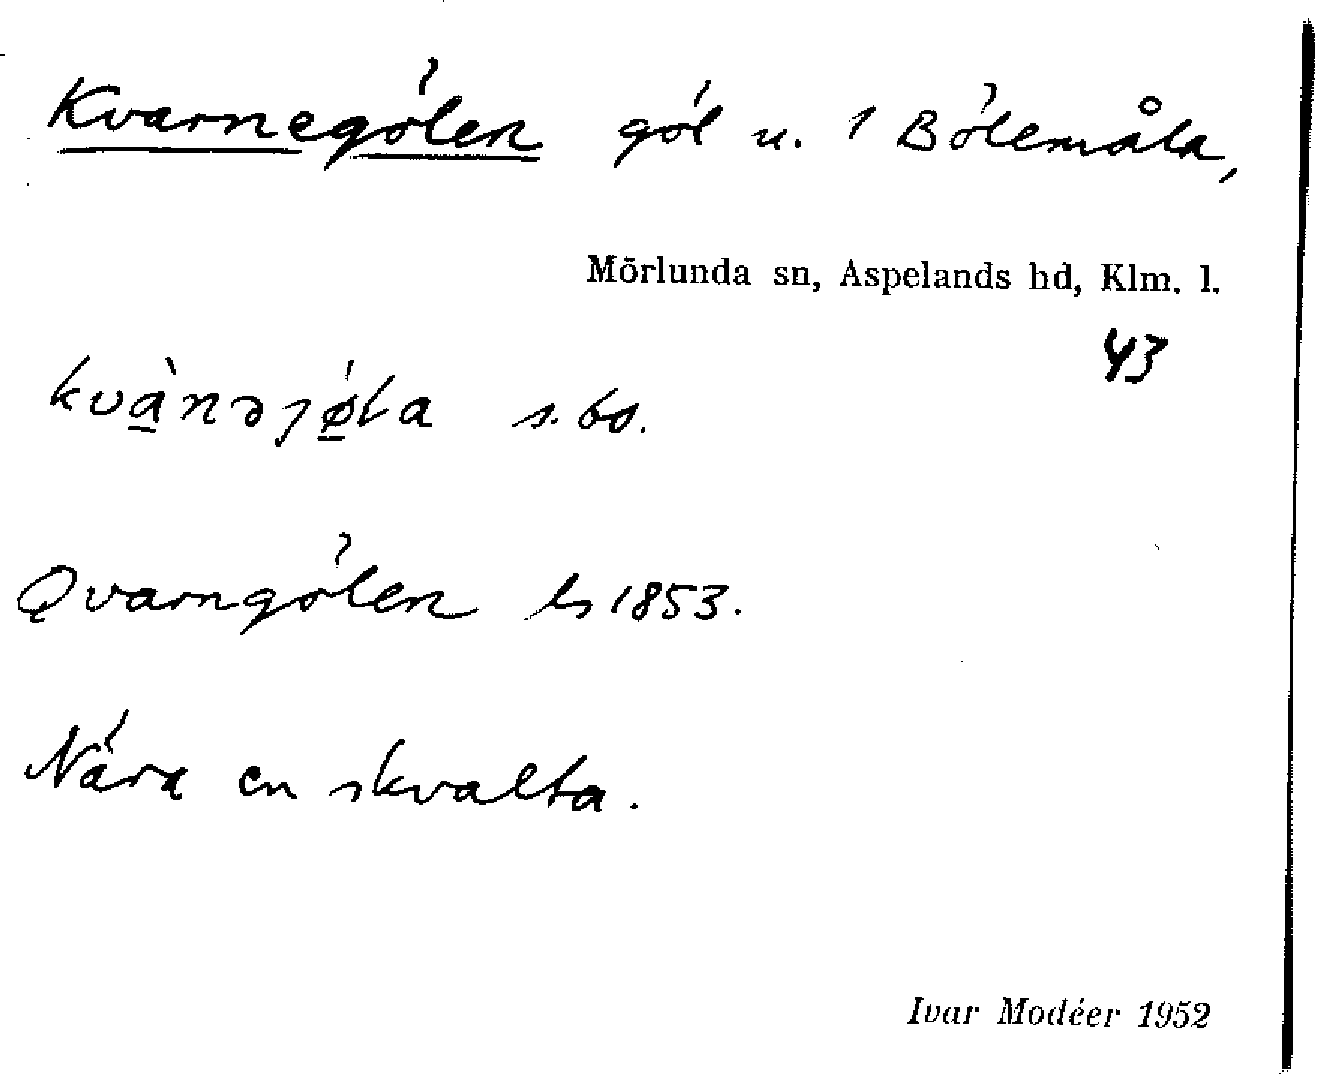 Kvarnegölen göl u. 1 Bölemåla,
Mörlunda sn, Aspelands hd, Klm. l.
43
kvànəjǿla s. bs.
Qvarngölen ls 1853.
Nära en skvalta.
Ivar Modéer 1952